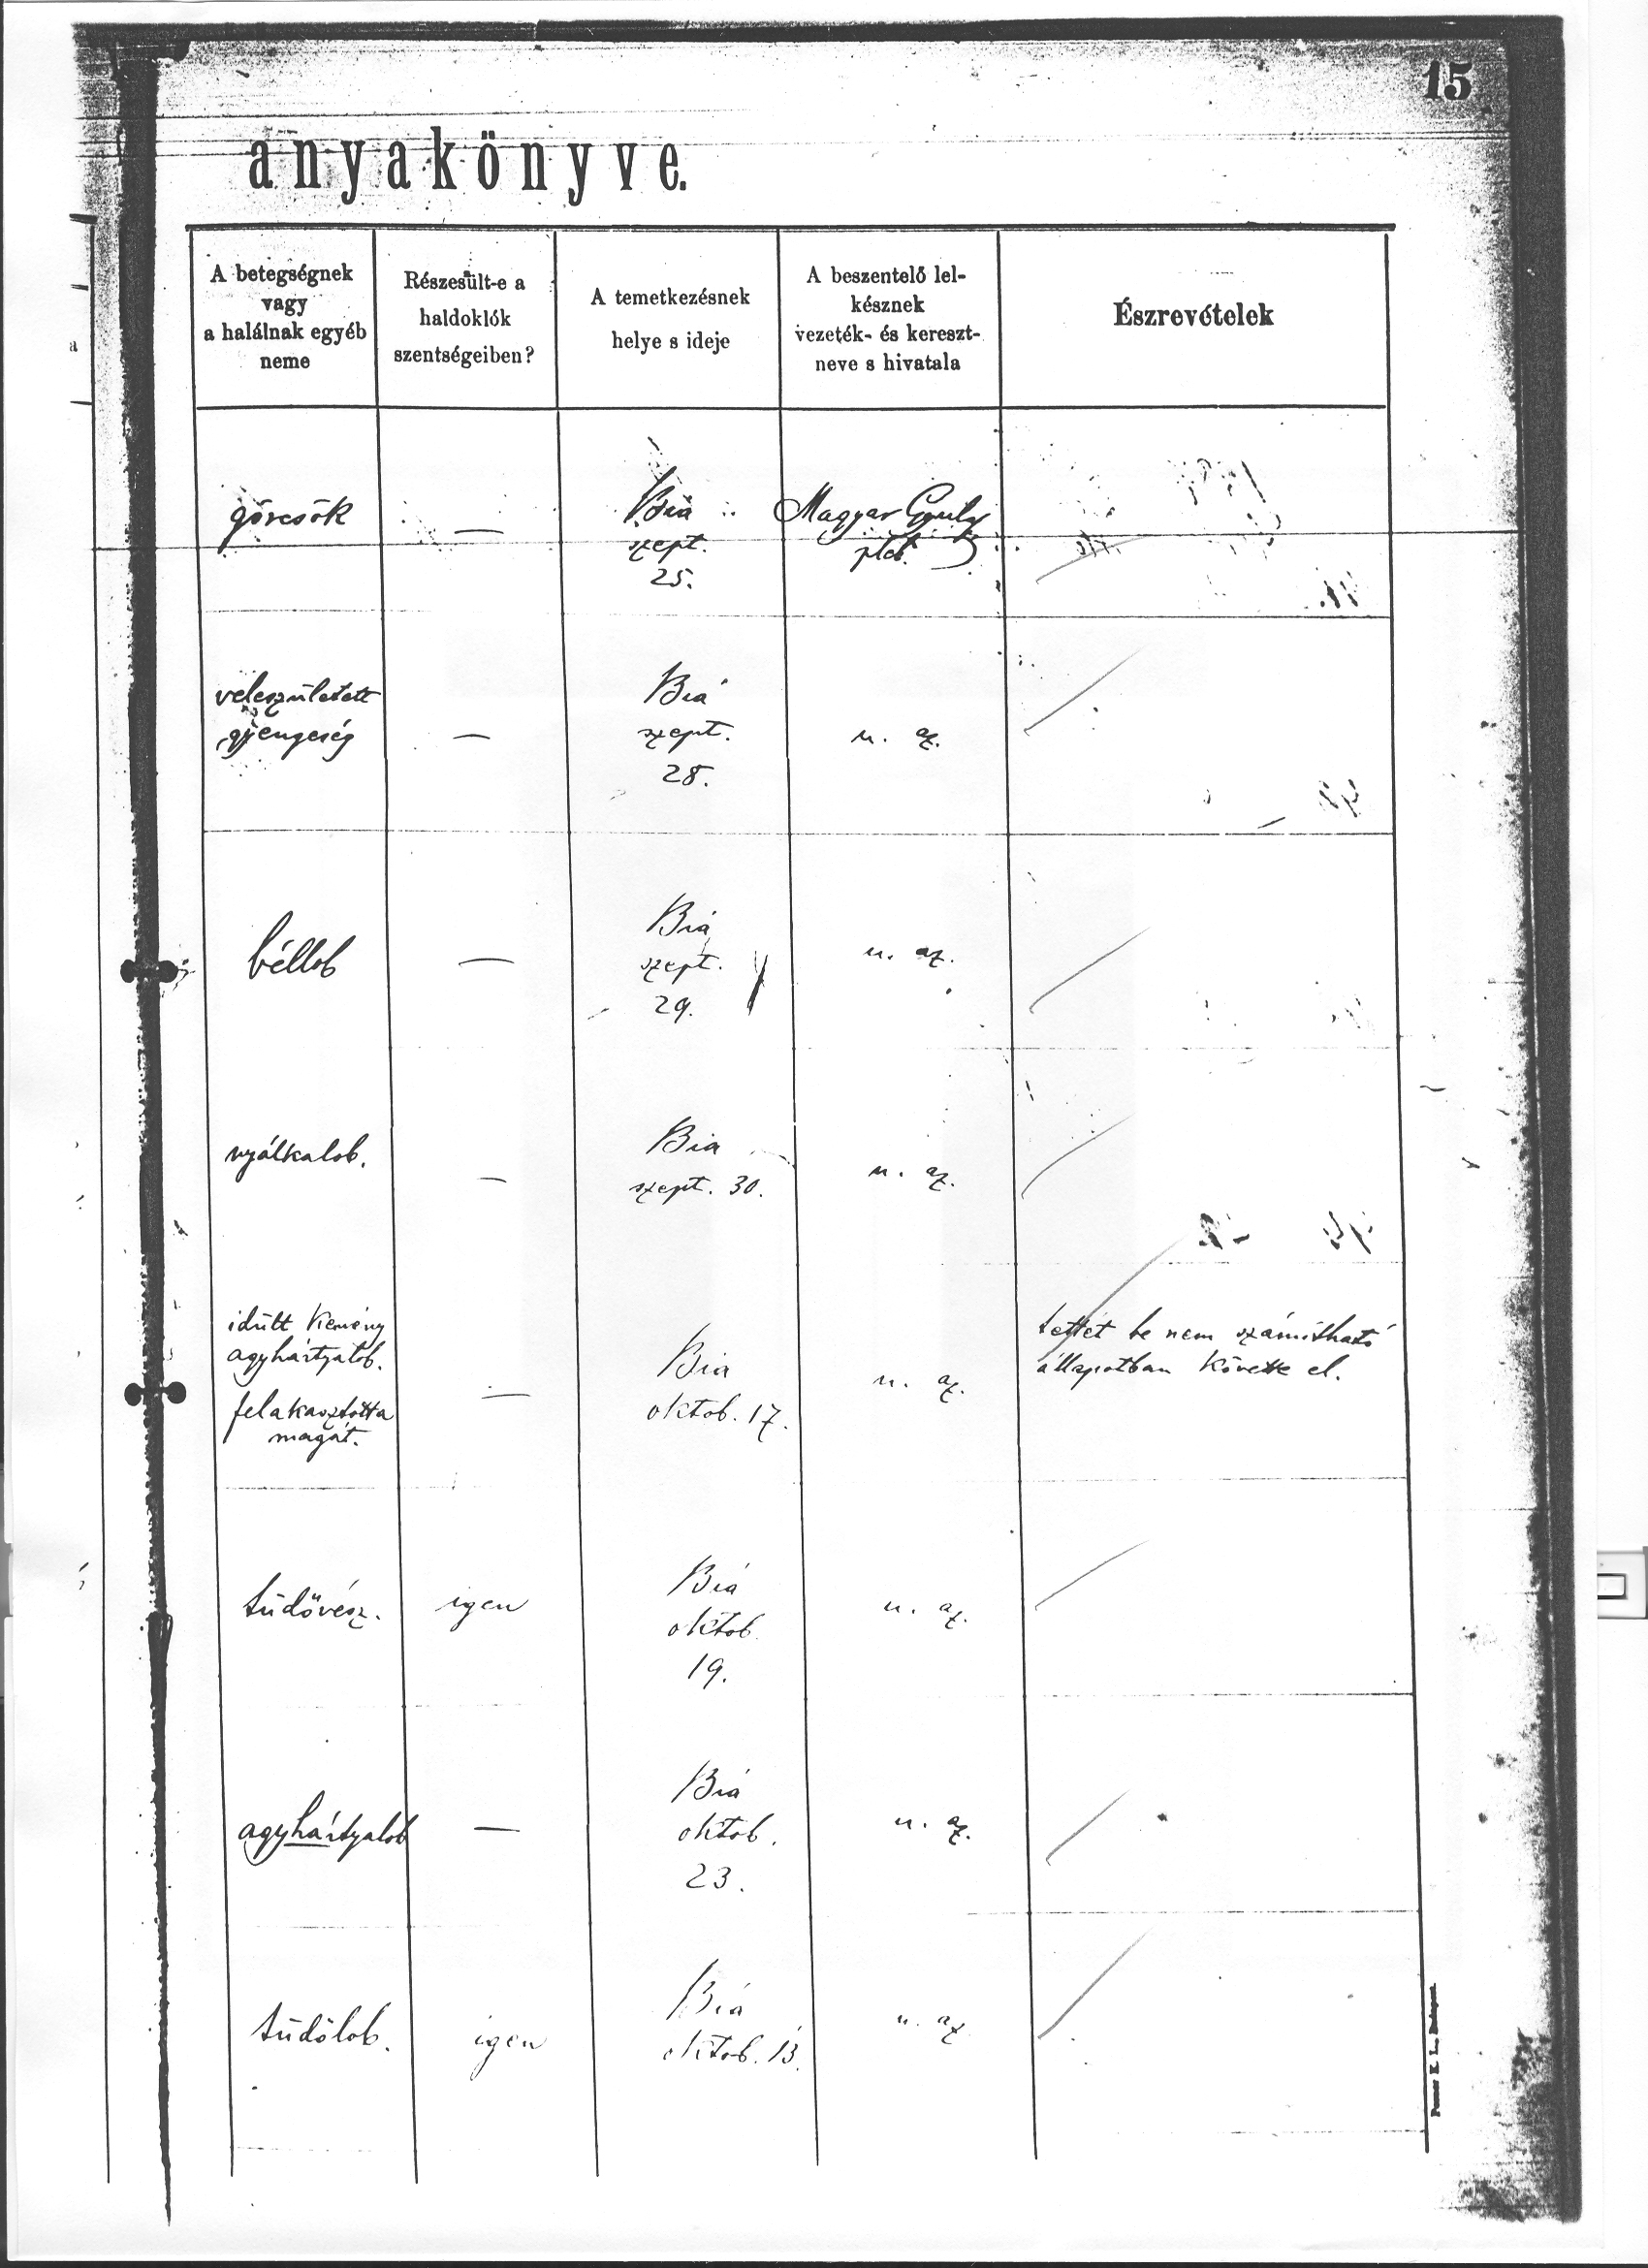 15
anyakönyve.
A betegségnek
vagy
a halálnak egyéb
neme
Részesült-e a
haldoklók
szentségeiben?
A temetkezésnek
helye s ideje
A beszentelő lel-
késznek
vezeték- és kereszt-
neve s hivatala
Észrevételek
görcsök
—
Bia
szept.
25.
Magyar Gyula
pleb.
veleszületett
gyengeség
—
Biá
szept.
28.
u. az.
béllob
—
Biá
szept.
29.
u. az.
nyálkalob.
—
Bia
szept. 30.
u. az.
idült kemény
agyhártyalob.
felakasztotta
magát.
—
Bia
oktob. 17.
u. az.
tettét be nem számítható
állapotban követte el.
tüdővész.
igen
Biá
oktob.
19.
u. az.
agyhártyalob
—
Biá
oktob.
23.
u. az.
tüdőlob.
igen
Biá
oktob. 13.
u. az
a